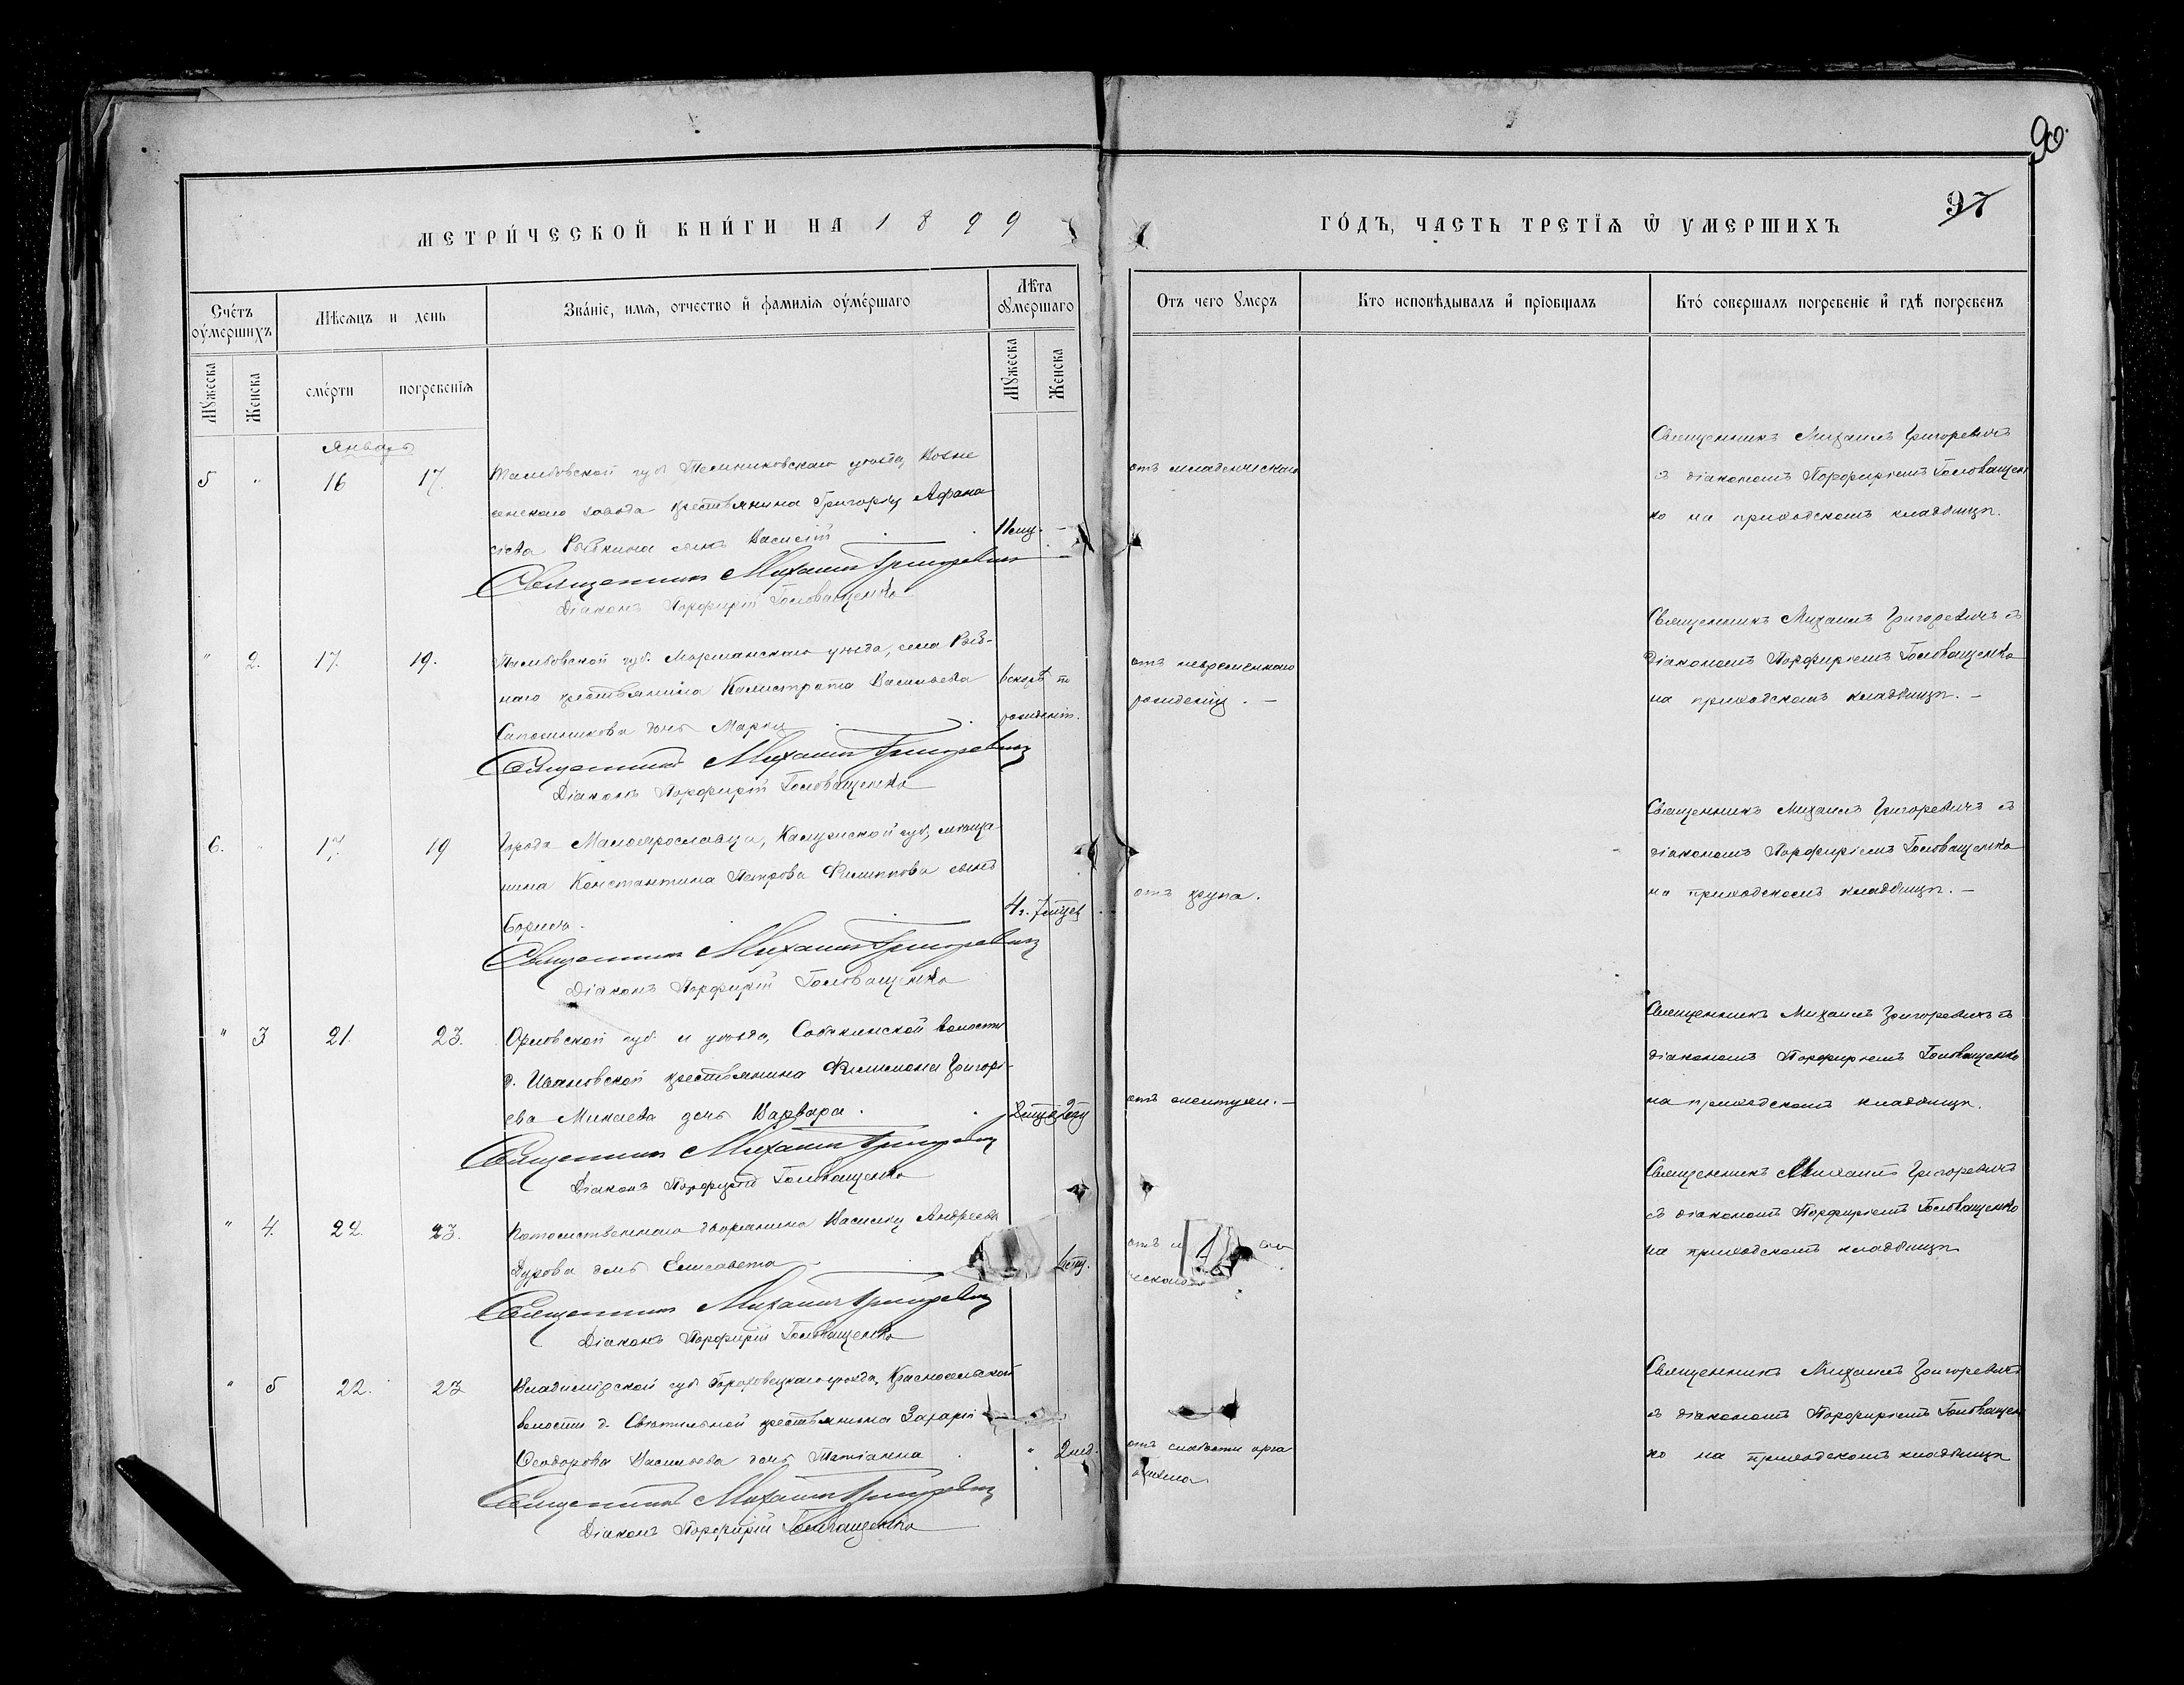 90.
97
МЕТРИ́ЧЕСКОЙ КНИ́ГИ НА 1899
ГО́ДЪ, ЧАСТЬ ТРЕТІѦ Ѿ УМЕРШИХЪ
Сче́тъ оу́мершихъ
Мѣсяцъ и день
Зва́ніе, имя, отчество и҆ фамилія оу́ме́ршаго
Лѣта Оу́мершаго
Отъ чего Умеръ
Кто исповѣдывалъ и҆ прїобщалъ
Кто́ совершалъ погребеніе и҆ гдѣ погребенъ
Мужеска
Женска
сме́рти
погребенія
Мужеска
Женска
Январь
5 " 16 17.
Тамбовской губ. Темниковскаго уѣзда, Возне
сенскаго завода крестьянина Григорія Афана
сіева сынъ Василій
Священникъ Михаилъ Григоревичъ
Діаконъ Порфирій Головащенко
отъ младенческаго
Священникъ Михаилъ Григоревичъ
съ діакономъ Порфиріемъ Головащен
ко на приходскомъ кладбищѣ.
" 2. 17. 19.
Тамбовской губ. Моршанскаго уѣзда, села
наго крестьянина Калистрата Васильева
Сапожникова дочь Марія
Священникъ Михаилъ Григоревичъ
Діаконъ Порфирій Головащенко
вскорѣ по
рожденіи.
отъ невременнаго
рожденія. —
Священникъ Михаилъ Григоревичъ съ
діакономъ Порфиріемъ Головащенко
на приходскомъ кладбищѣ. —
6. " 17. 19
Города Малоярославца, Калужской губ. мѣща
нина Константина Петрова Филиппова сынъ
Борисъ.
4 г. 7
Священникъ Михаилъ Григоревичъ
Діаконъ Порфирій Головащенко
отъ крупа.
Священникъ Михаилъ Григоревичъ съ
діакономъ Порфиріемъ Головащенко
на приходскомъ кладбищѣ. —
" 3 21. 23.
Орловской губ. и уѣзда, волости
д. Ивановской крестьянина Филимона Григорі-
ева Минаева дочь Варвара.
Священникъ Михаилъ Григоревичъ
Діаконъ Порфирій Головащенко
Священникъ Михаилъ Григоревичъ съ
діакономъ Порфиріемъ Головащенко
на приходскомъ кладбищѣ.
" 4. 22. 23.
Потомственнаго дворянина Василія Андреева
Дурова дочь Елисавета
Священникъ Михаилъ Григоревичъ
Діаконъ Порфирій Головащенко
отъ
ческаго
Священникъ Михаилъ Григоревичъ
съ діакономъ Порфиріемъ Головащенко
на приходскомъ кладбищѣ
" 5 22. 23
Владимірской губ. Гороховецкаго уѣзда, Красносельской
волости д. Свѣтильной крестьянина Захарія
Ѳеодорова Васильева дочь Татіанна
" 2 нед.
Священникъ Михаилъ Григоревичъ
Діаконъ Порфирій Головащенко
отъ слабости орга
низма
Священникъ Михаилъ Григоревичъ
съ діакономъ Порфиріемъ Головащен
ко на приходскомъ кладбищѣ